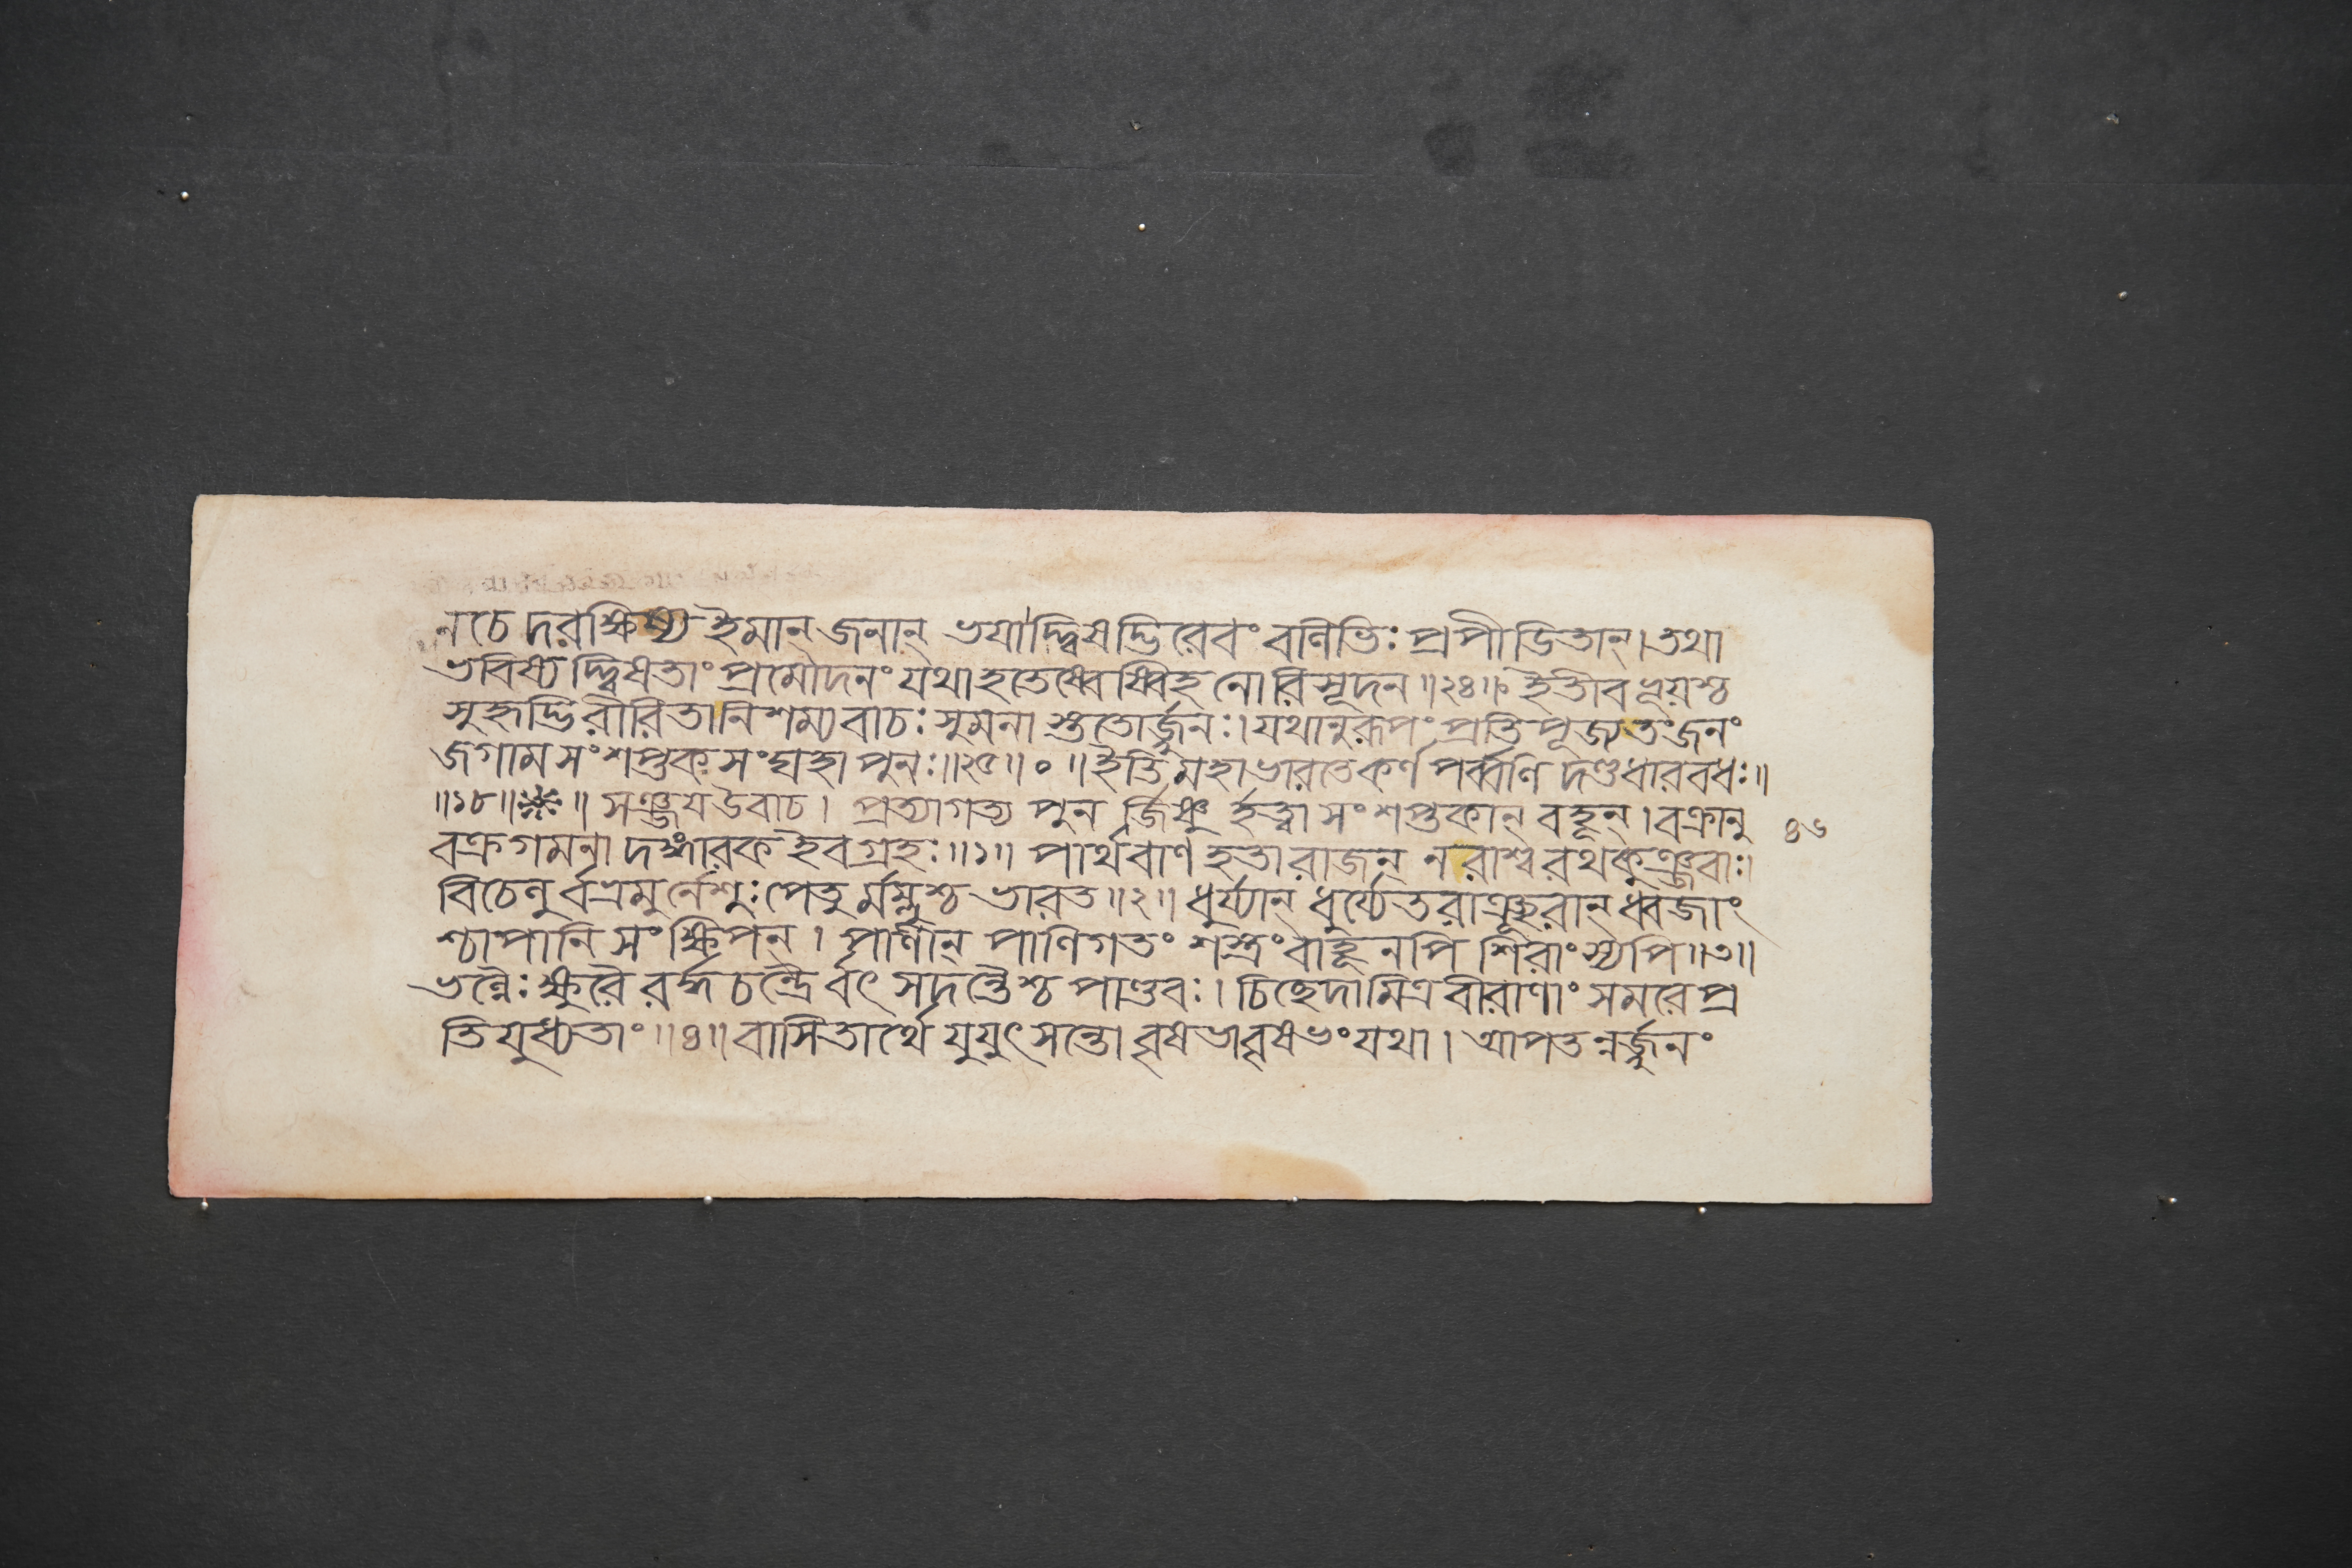 ন চে দরক্ষিষ্য ইমান্ জনান্ ভযাদ্দ্বিষদ্ভিরেবং বলিভিঃ প্রপীডিতান্। তথা
ভবিষ্য দ্দ্বিষতাং প্রমোদনং যথা হতেষ্বেষ্বিহ নোরিসূদন॥২৪॥ ইতীব ভূয়শ্চ
সুহৃদ্ভিরীরিতা নিশম্য বাচঃ সুমনা স্ততোর্জ্জুনঃ। যথানুরূপং প্রতিপূজ্য তংজনং
জগাম সংশপ্তক সংঘহা পুনঃ॥২৫॥০॥ ইতি মহাভারতে কর্ণ পর্ব্বণি দণ্ডধারবধঃ॥
॥১৮॥ ॥ সঞ্জয উবাচ। প্রত্যাগত্য পুন র্জিষ্ণু র্হত্বা সংশপ্তকান্ বহূন্। বক্রানু
বক্রগমনা দঙ্গারক ইব গ্রহঃ॥১॥ পার্থবাণ হতা রাজন্ নরাশ্ব রথ কুঞ্জরাঃ।
বিচেলু র্বভ্রমু র্নেশুঃ পেতু র্মম্লুশ্চ ভারত॥২॥ ধুর্য্যান্ ধুর্য্যেতরাঞ্ছূরান্ ধ্বজাং
শ্চাপানি সংক্ষিপন্। পাণীন্ পাণিগতং শস্ত্রং বাহূনপি শিরাংস্যপি॥৩॥
ভল্লৈঃ ক্ষুরৈ রর্দ্ধচন্দ্রৈ র্বৎসদন্তৈশ্চ পাণ্ডবঃ। চিচ্ছেদামিত্র বীরাণাং সমরে প্র
তি যুধ্যতাং॥৪॥ বাসিতার্থে যুযুৎসন্তো বৃষভা বৃষভং যথা। আপতন্নর্জ্জুনং
৪৬